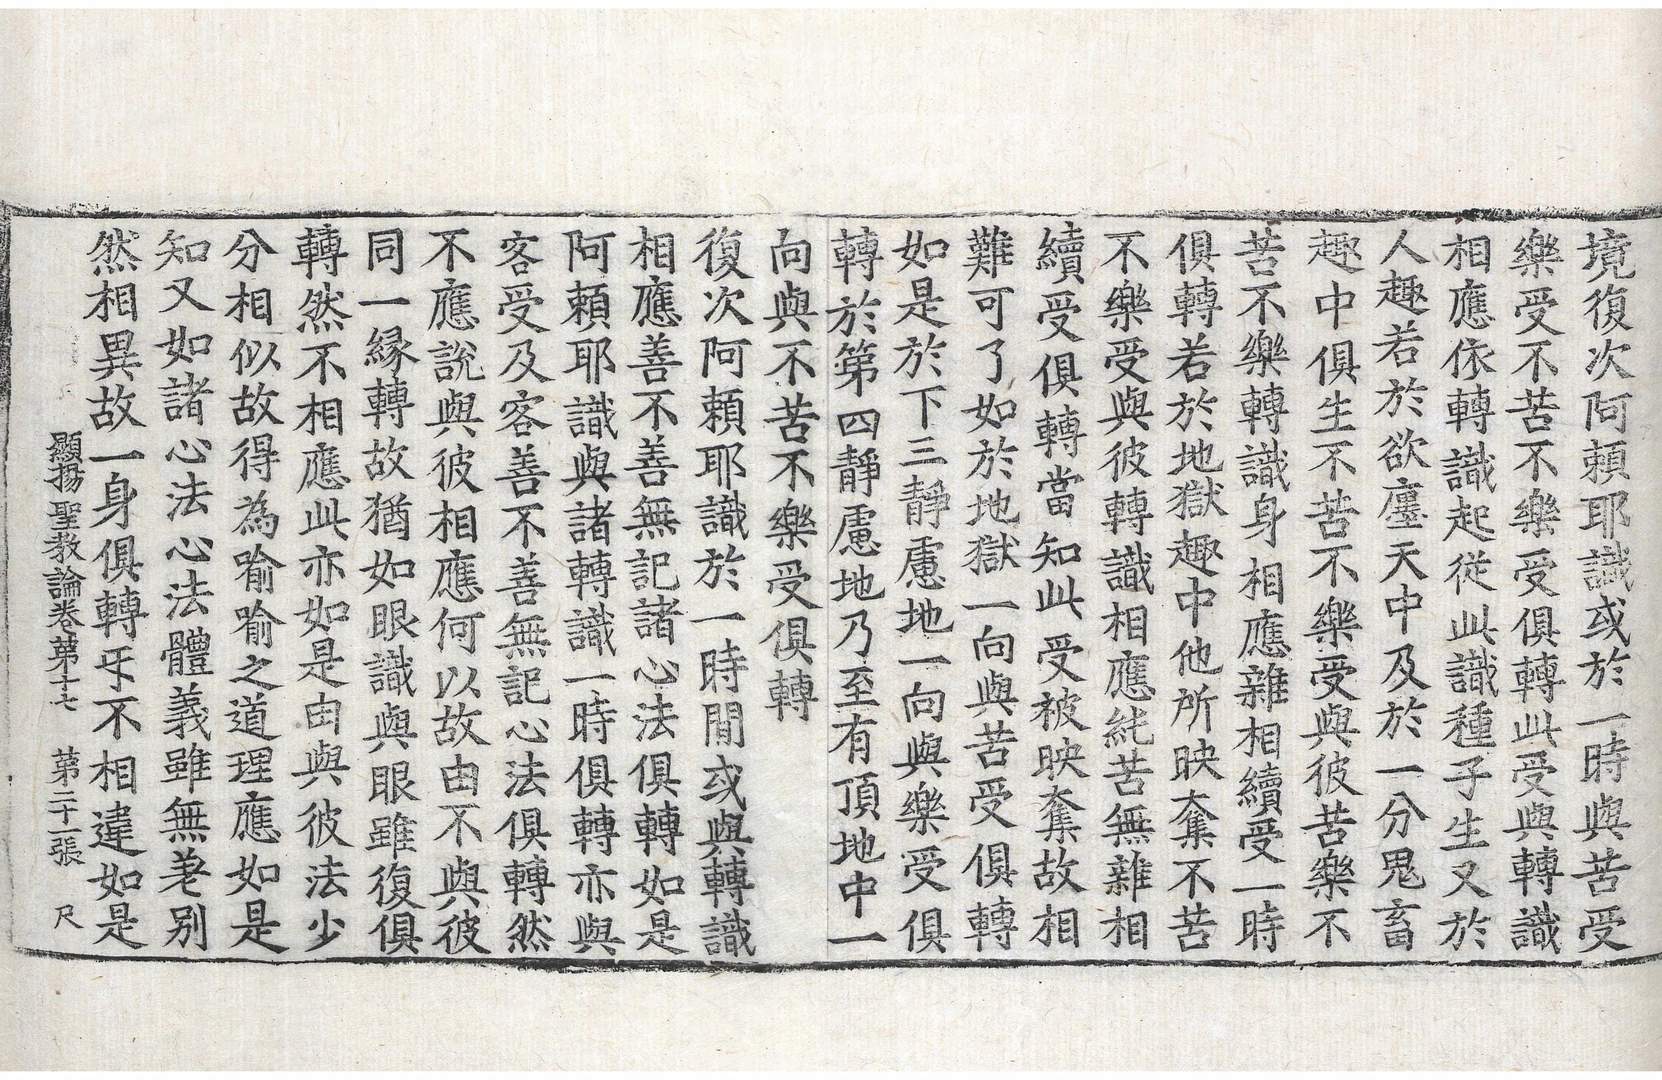 境復次阿頼耶識或於一時與苦受
樂受不苦不樂受俱轉此受與轉識
相應依轉識起從此識種子生又於
人趣若於欲廛天中及於一分鬼畜
趣中俱生不苦不樂受與彼苦樂不
苦不樂轉識身相應雜相續受一時
俱轉若於地獄趣中他所映奪不苦
不樂受與彼轉識相應純苦無雜相
續受俱轉當知此受被映奪故相
難可了如於地獄一向與苦受俱轉
如是於下三靜慮地一向與樂受俱
轉於第四靜慮地乃至有頂地中一
向與不苦不樂受俱轉
復次阿頼耶識於一時間或與轉識
相應善不善無記諸心法俱轉如是
阿頼耶識與諸轉識一時俱轉亦與
客受及客善不善無記心法俱轉然
不應說與彼相應何以故由不與彼
同一緣轉故猶如眼識與眼雖復俱
轉然不相應此亦如是由與彼法少
分相似故得為喻喻之道理應如是
知又如諸心法心法體義雖無差別
然相異故一身俱轉乎不相違如是
顯揚聖教論卷第十七 第二十一張 尺